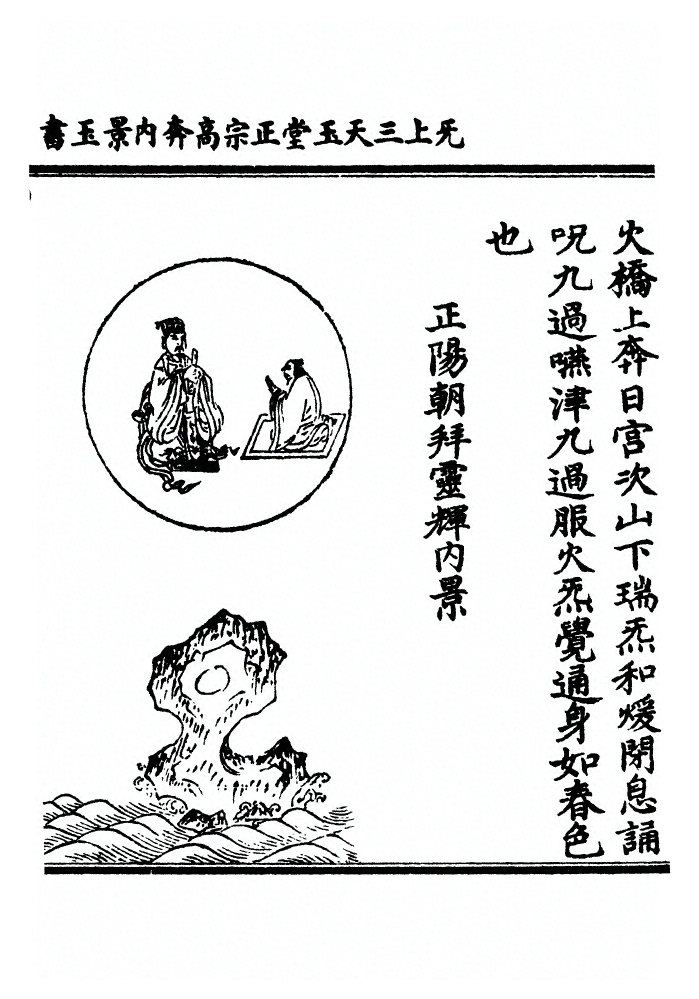 旡上三天玉堂正宗高奔內景玉書
火橋上奔日宮次山下瑞炁和煖閉息誦
呪九過嚥津九過服火炁覺通身如春色
也
正陽朝拜靈輝內景